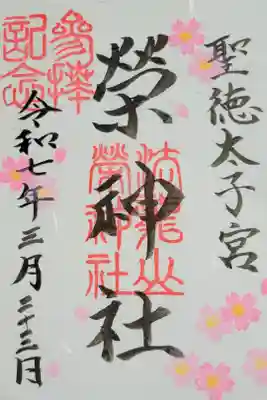 聖徳太子宮
榮神社
榮神社
參拝
記念
令和七年三月二十三日